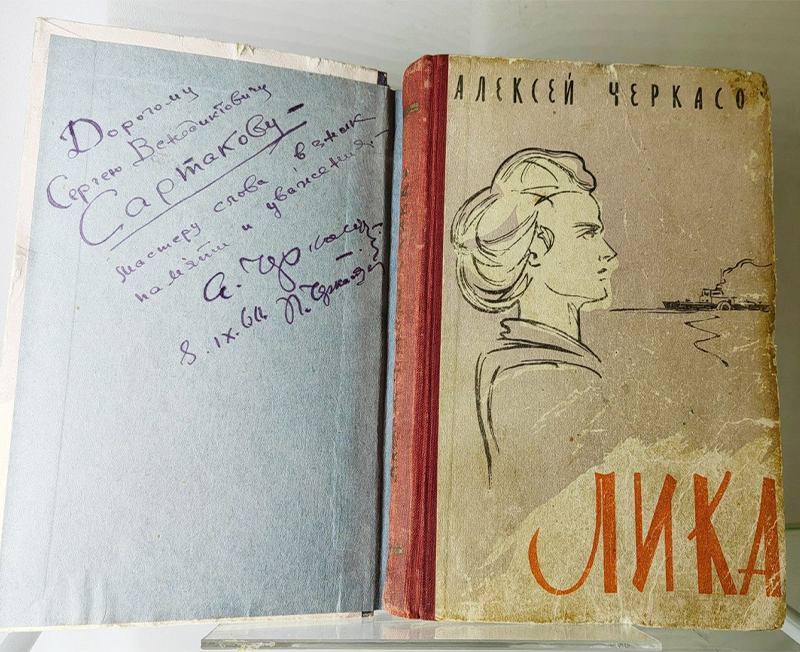 Дорогому
Сергею Венедиктовичу
Сартакову —
мастеру слова в знак
памяти и уважения.
А. Черкасов
8.IX.60. П.
АЛЕКСЕЙ ЧЕРКАСО
ЛИКА